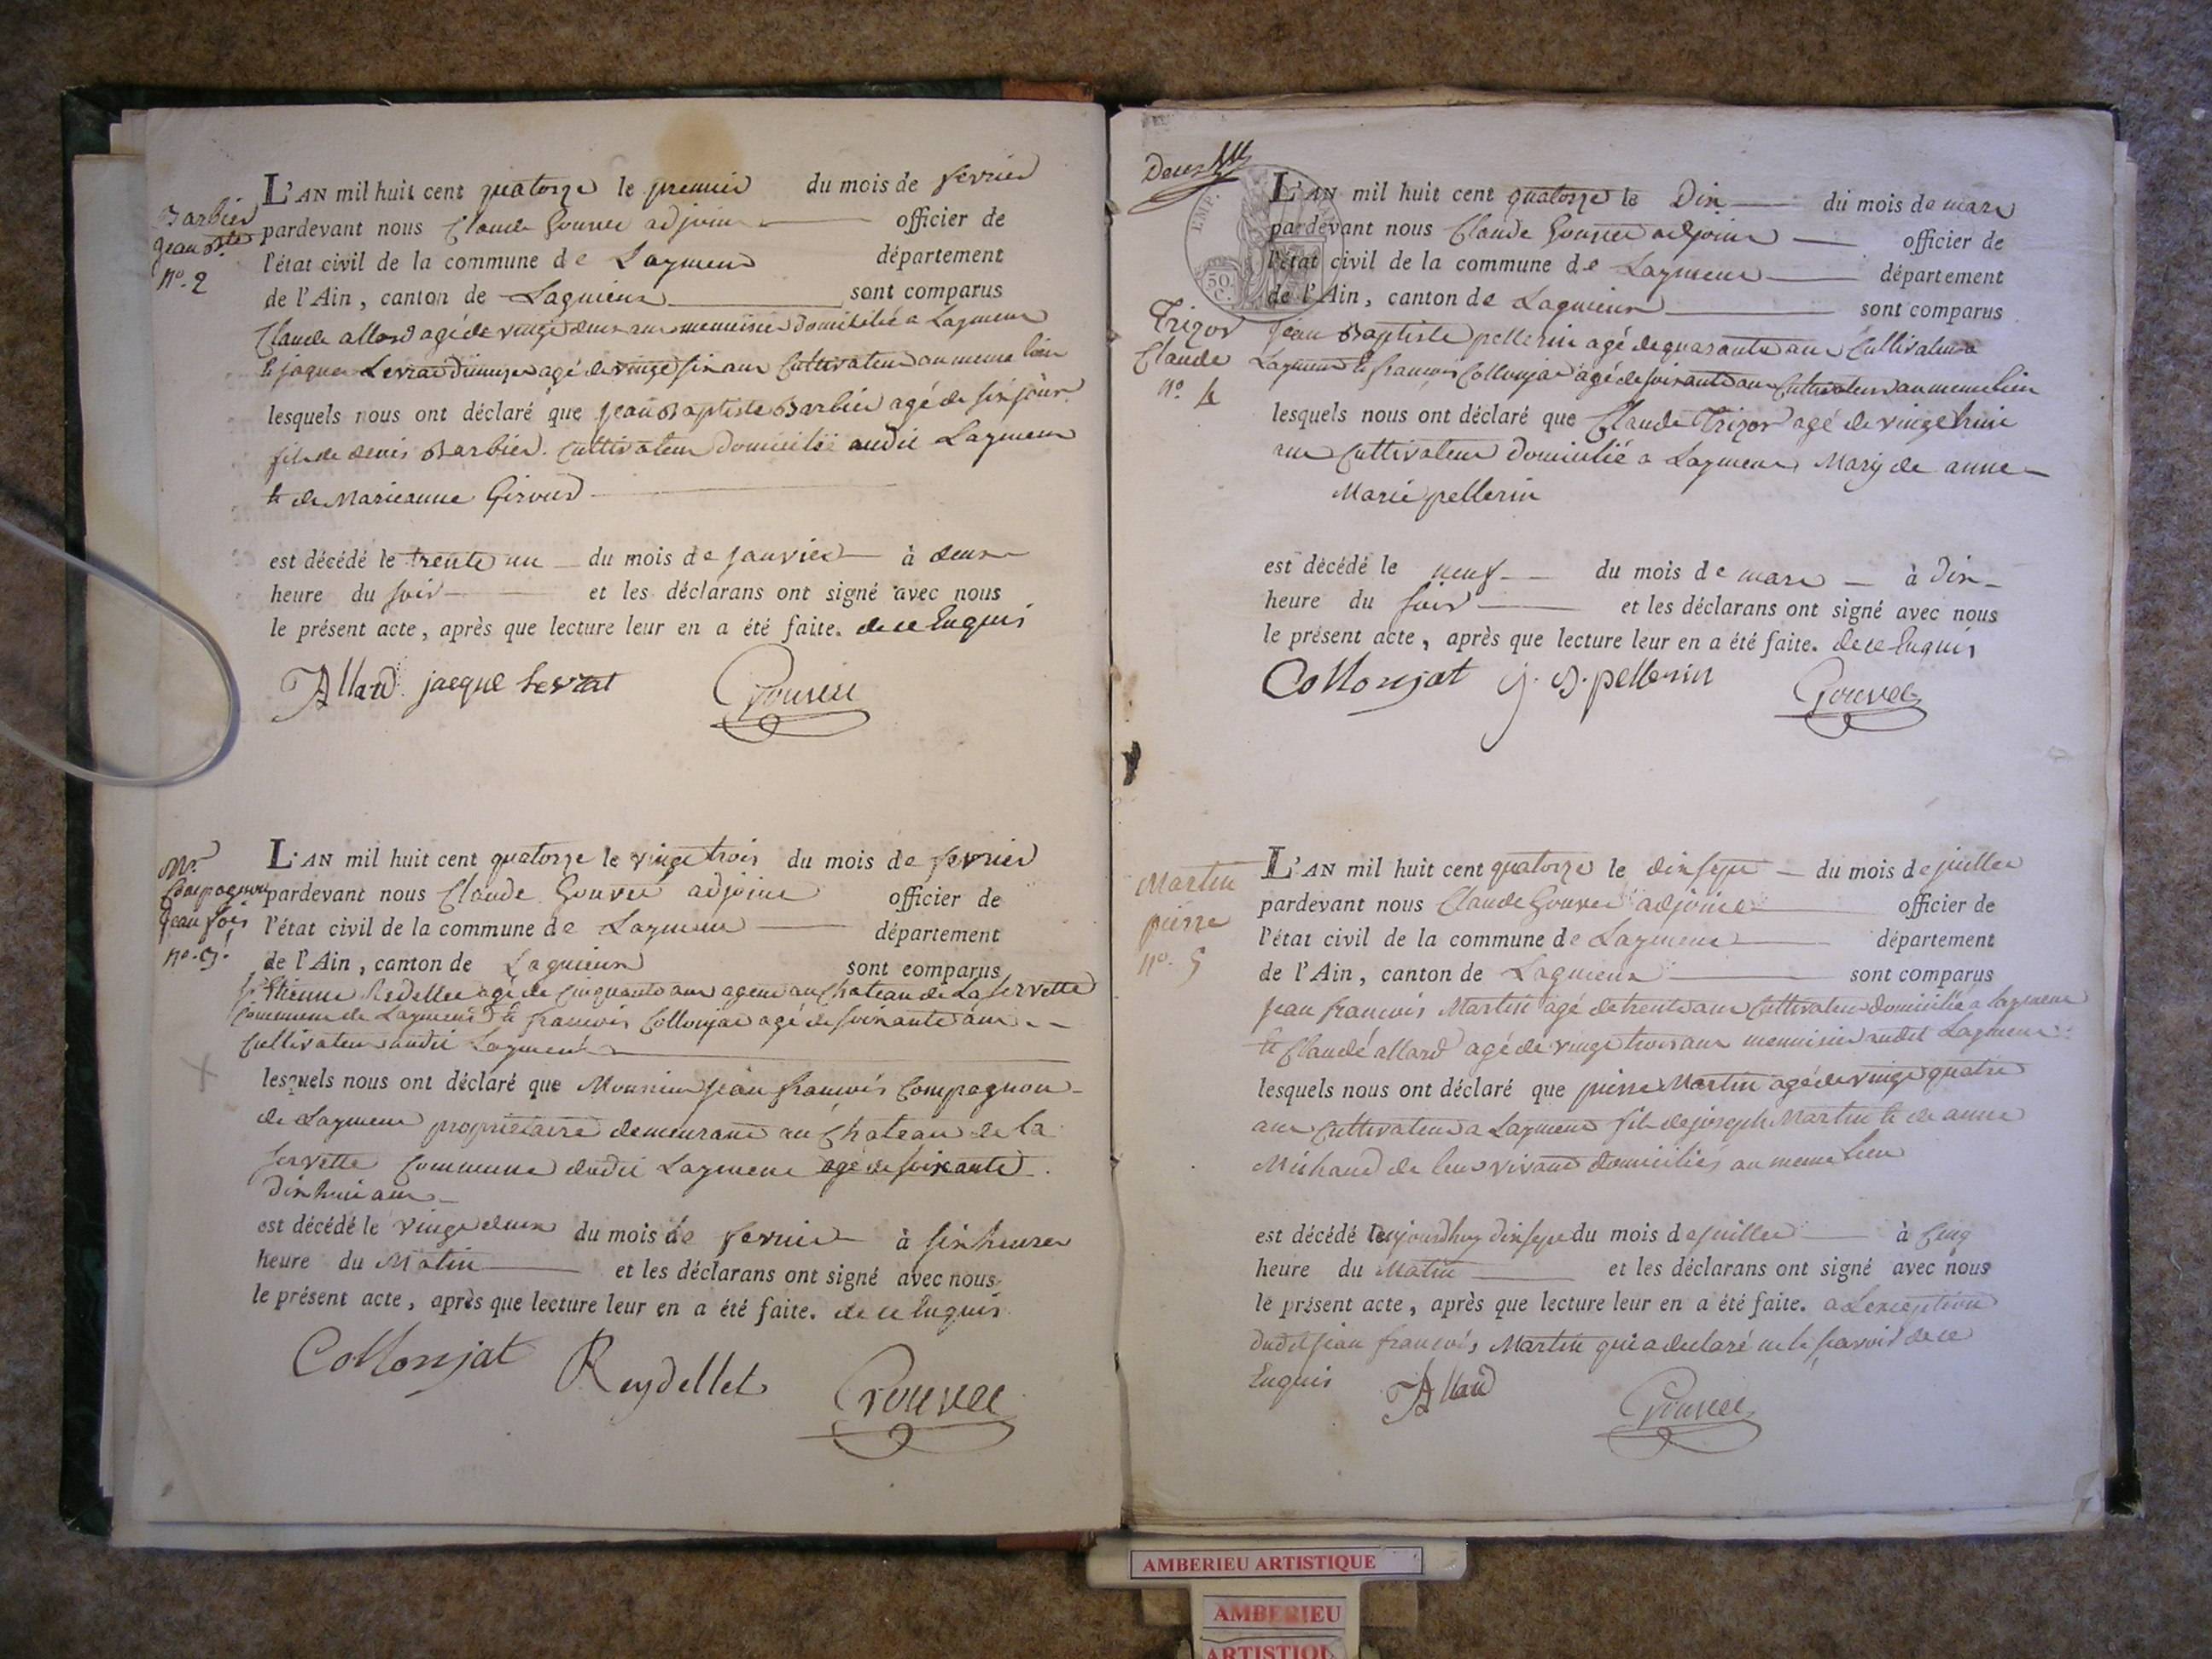 Barbier
Jean Bte
No. 2
L'AN mil huit cent quatorze le premier du mois de fevrier
pardevant nous Claude Gouvee adjoint officier de
l'état civil de la commune de Laymens département
de l'Ain, canton de Lagnieux sont comparus
Claude allard agé de vingt deux ans menuisier domicilié a Laymens
et jaque Levrat agé de vingt six ans Cultivateur au meme lieu
lesquels nous ont déclaré que jean Baptiste Barbier agé de six jour
fils de denis Barbier Cultivateur domicilié audit Laymens
et de Marieanne Giroud
est décédé le trente un du mois de janvier à deux
heure du soir et les déclarans ont signé avec nous
le présent acte, après que lecture leur en a été faite. de ce Enquis
Allard jacque Levrat Gouvee
Mr.
Compagnon
Jean fois
No. 3
L'AN mil huit cent quatorze le vingt trois du mois de fevrier
pardevant nous Claude Gouvee adjoint officier de
l'état civil de la commune de Laymens département
de l'Ain, canton de Lagnieux sont comparus
Sr Etienne Redellet agé de Cinquante ans agent au Chateau de La Servette
Commune de Laymens et francois Collonjat agé de soixante ans
Cultivateur audit Laymens
lesquels nous ont déclaré que Monsieur jean francois Compagnon
de Laymens propriétaire demeurant au Chateau de la
servette Commune dudit Laymens agé de soixante
dix huit ans
est décédé le vingt deux du mois de fevrier à six heures
heure du Matin et les déclarans ont signé avec nous
le présent acte, après que lecture leur en a été faite. de ce Enquis
Collonjat Reydellet Gouvee
Deux
EMP.
50 C.
Trizor
Claude
No. 4
L'AN mil huit cent quatorze le Dix du mois de mars
pardevant nous Claude Gouvee adjoint officier de
l'état civil de la commune de Laymens département
de l'Ain, canton de Lagnieux sont comparus
Jean Baptiste pellerin agé de quarante ans Cultivateur a
Laymens et francois Collonjat agé de soixante ans Cultivateur au meme lieu
lesquels nous ont déclaré que Claude Trizor agé de vingt huit
ans Cultivateur domicilié a Laymens Mary de anne
Marie pellerin
est décédé le neuf du mois de mars à dix
heure du soir et les déclarans ont signé avec nous
le présent acte, après que lecture leur en a été faite. de ce Enquis
Collonjat j. B. pellerin Gouvee
Martin
pierre
No. 5
L'AN mil huit cent quatorze le dix sept du mois de juillet
pardevant nous Claude Gouvee adjoint officier de
l'état civil de la commune de Laymens département
de l'Ain, canton de Lagnieux sont comparus
Jean francois Martin agé de trente ans Cultivateur domicilié a Laymens
et Claude allard agé de vingt trois ans menuisier audit Laymens
lesquels nous ont déclaré que pierre Martin agé de vingt quatre
ans Cultivateur a Laymens fils de joseph Martin et de anne
Michaud de leur vivant domiciliés au meme lieu
est décédé aujourdhuy dix sept du mois de juillet à Cinq
heure du Matin et les déclarans ont signé avec nous
le présent acte, après que lecture leur en a été faite. a Lexception
dudit jean francois Martin qui a declaré ne le scavoir de ce
Enquis Allard Gouvee
AMBERIEU ARTISTIQUE
AMBERIEU
ARTISTIQU